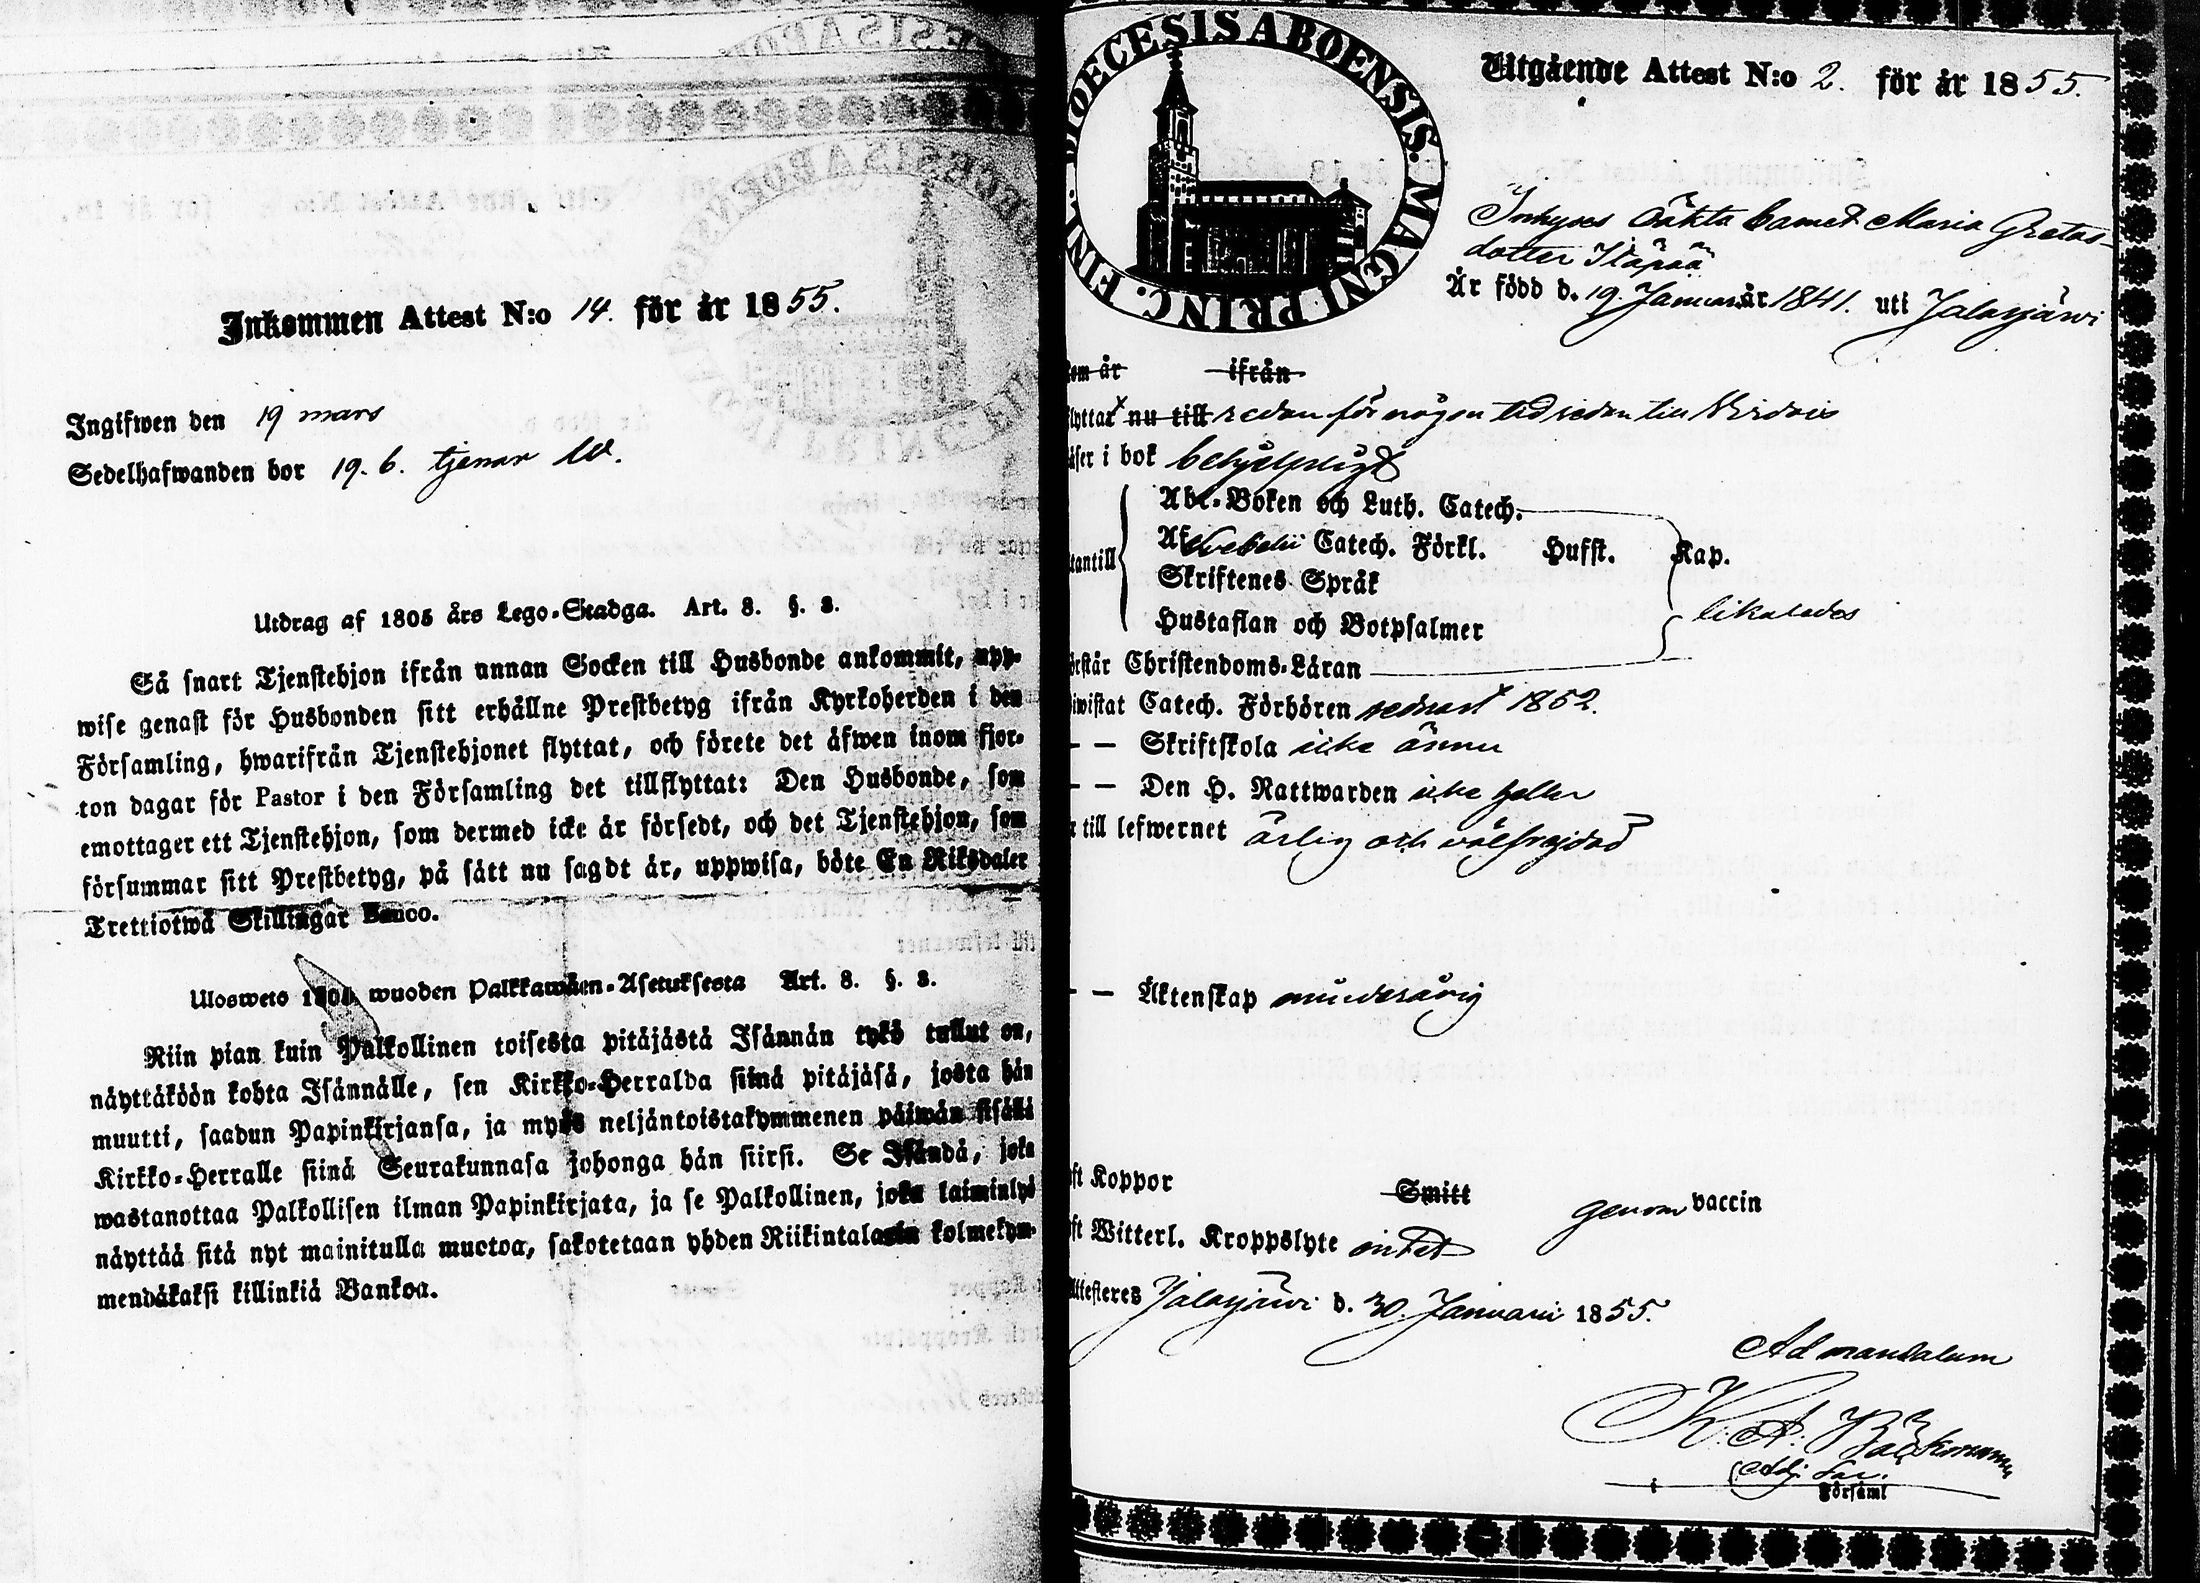 Inkommen Attest N:o 14. för år 1855.
Ingifwen den 19 mars
Sedelhafwanden bor 19. 6. tjenar
Utdrag af 1805 års Lego-Stadga. Art. 8. §. 8.
Så snart Tjenstehjon ifrån annan Socken till Husbonde ankommit, upp-
wise genast för Husbonden sitt erhållne Prestbetyg ifrån Kyrkoherden i den
Församling, hwarifrån Tjenstehjonet flyttat, och förete det äfwen inom fjor-
ton dagar för Pastor i den Församling det tillflyttat: Den Husbonde, som
emottager ett Tjenstehjon, som dermed icke är försedt, och det Tjenstehjon, som
försummar sitt Prestbetyg, på sätt nu sagdt är, uppwisa, böte En Riksdaler
Trettiotwå Skillingar Banco.
Ulosweto 1805 wuoden Palkkawäen-Asetuksesta Art. 8. §. 8.
Niin pian kuin Palkollinen toisesta pitäjästä Isännän tykö tullut on,
näyttäköön kohta Isännälle, sen Kirkko-Herralda siinä pitäjäsä, josta hän
muutti, saadun Papinkirjansa, ja myös neljäntoistakymmenen päiwän sisällä
Kirkko-Herralle siinä Seurakunnasa johonga hän siirsi. Se Isändä, joka
wastanottaa Palkollisen ilman Papinkirjata, ja se Palkollinen, joka laiminlyö
näyttää sitä nyt mainitulla muotoa, sakotetaan yhden Riikintalarin kolmekym-
mendäkaksi killinkiä Bankoa.
FINL. DIOECESIS ABOENSIS. MAGNI PRINC.
Utgående Attest N:o 2. för år 1855.
Inhyses Oäkta barnet Maria Gretas-
dotter Iläpää
Är född d. 19 Januari år 1841. uti Jalasjärwi
kom år ifrån
flyttar nu till redan för någon tid sedan till Wirdois
läser i bok behjelpligt
Abc-Boken och Luth. Catech.
Af Swebelii Catech. Förkl. Husst. Kap.
utantill Skriftenes Språk
Hustaflan och Botpsalmer likaledes
förstår Christendoms-Läran
biwistat Catech. Förhören sednast 1852.
— — Skriftskola icke ännu
— — Den H. Nattwarden icke heller
är till lefwernet ärlig och wälfrejdad
— — Äktenskap minderårig
haft Koppor Smitt genom vaccin
haft Witterl. Kroppslyte intet
Attesteres Jalasjärwi d. 30. Januari 1855.
Ad mandatum
K. A. Bäckman
Adj. Sac.
i Församl